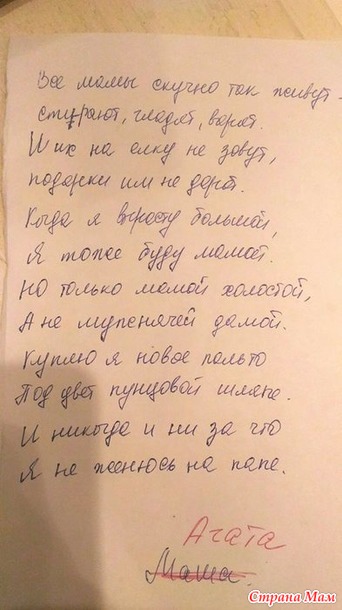 Все мамы скучно так живут -
стирают, гладят, варят.
И их на елку не зовут,
подарки им не дарят.
Когда я вырасту большой,
Я тоже буду мамой.
НО только мамой холостой,
А не мупсенячей дамой.
Куплю я новое пальто
Под цвет пунцовой шляпе.
И никогда и ни за что
Я не женюсь на папе.
Агата
Маша.
Страна Мам